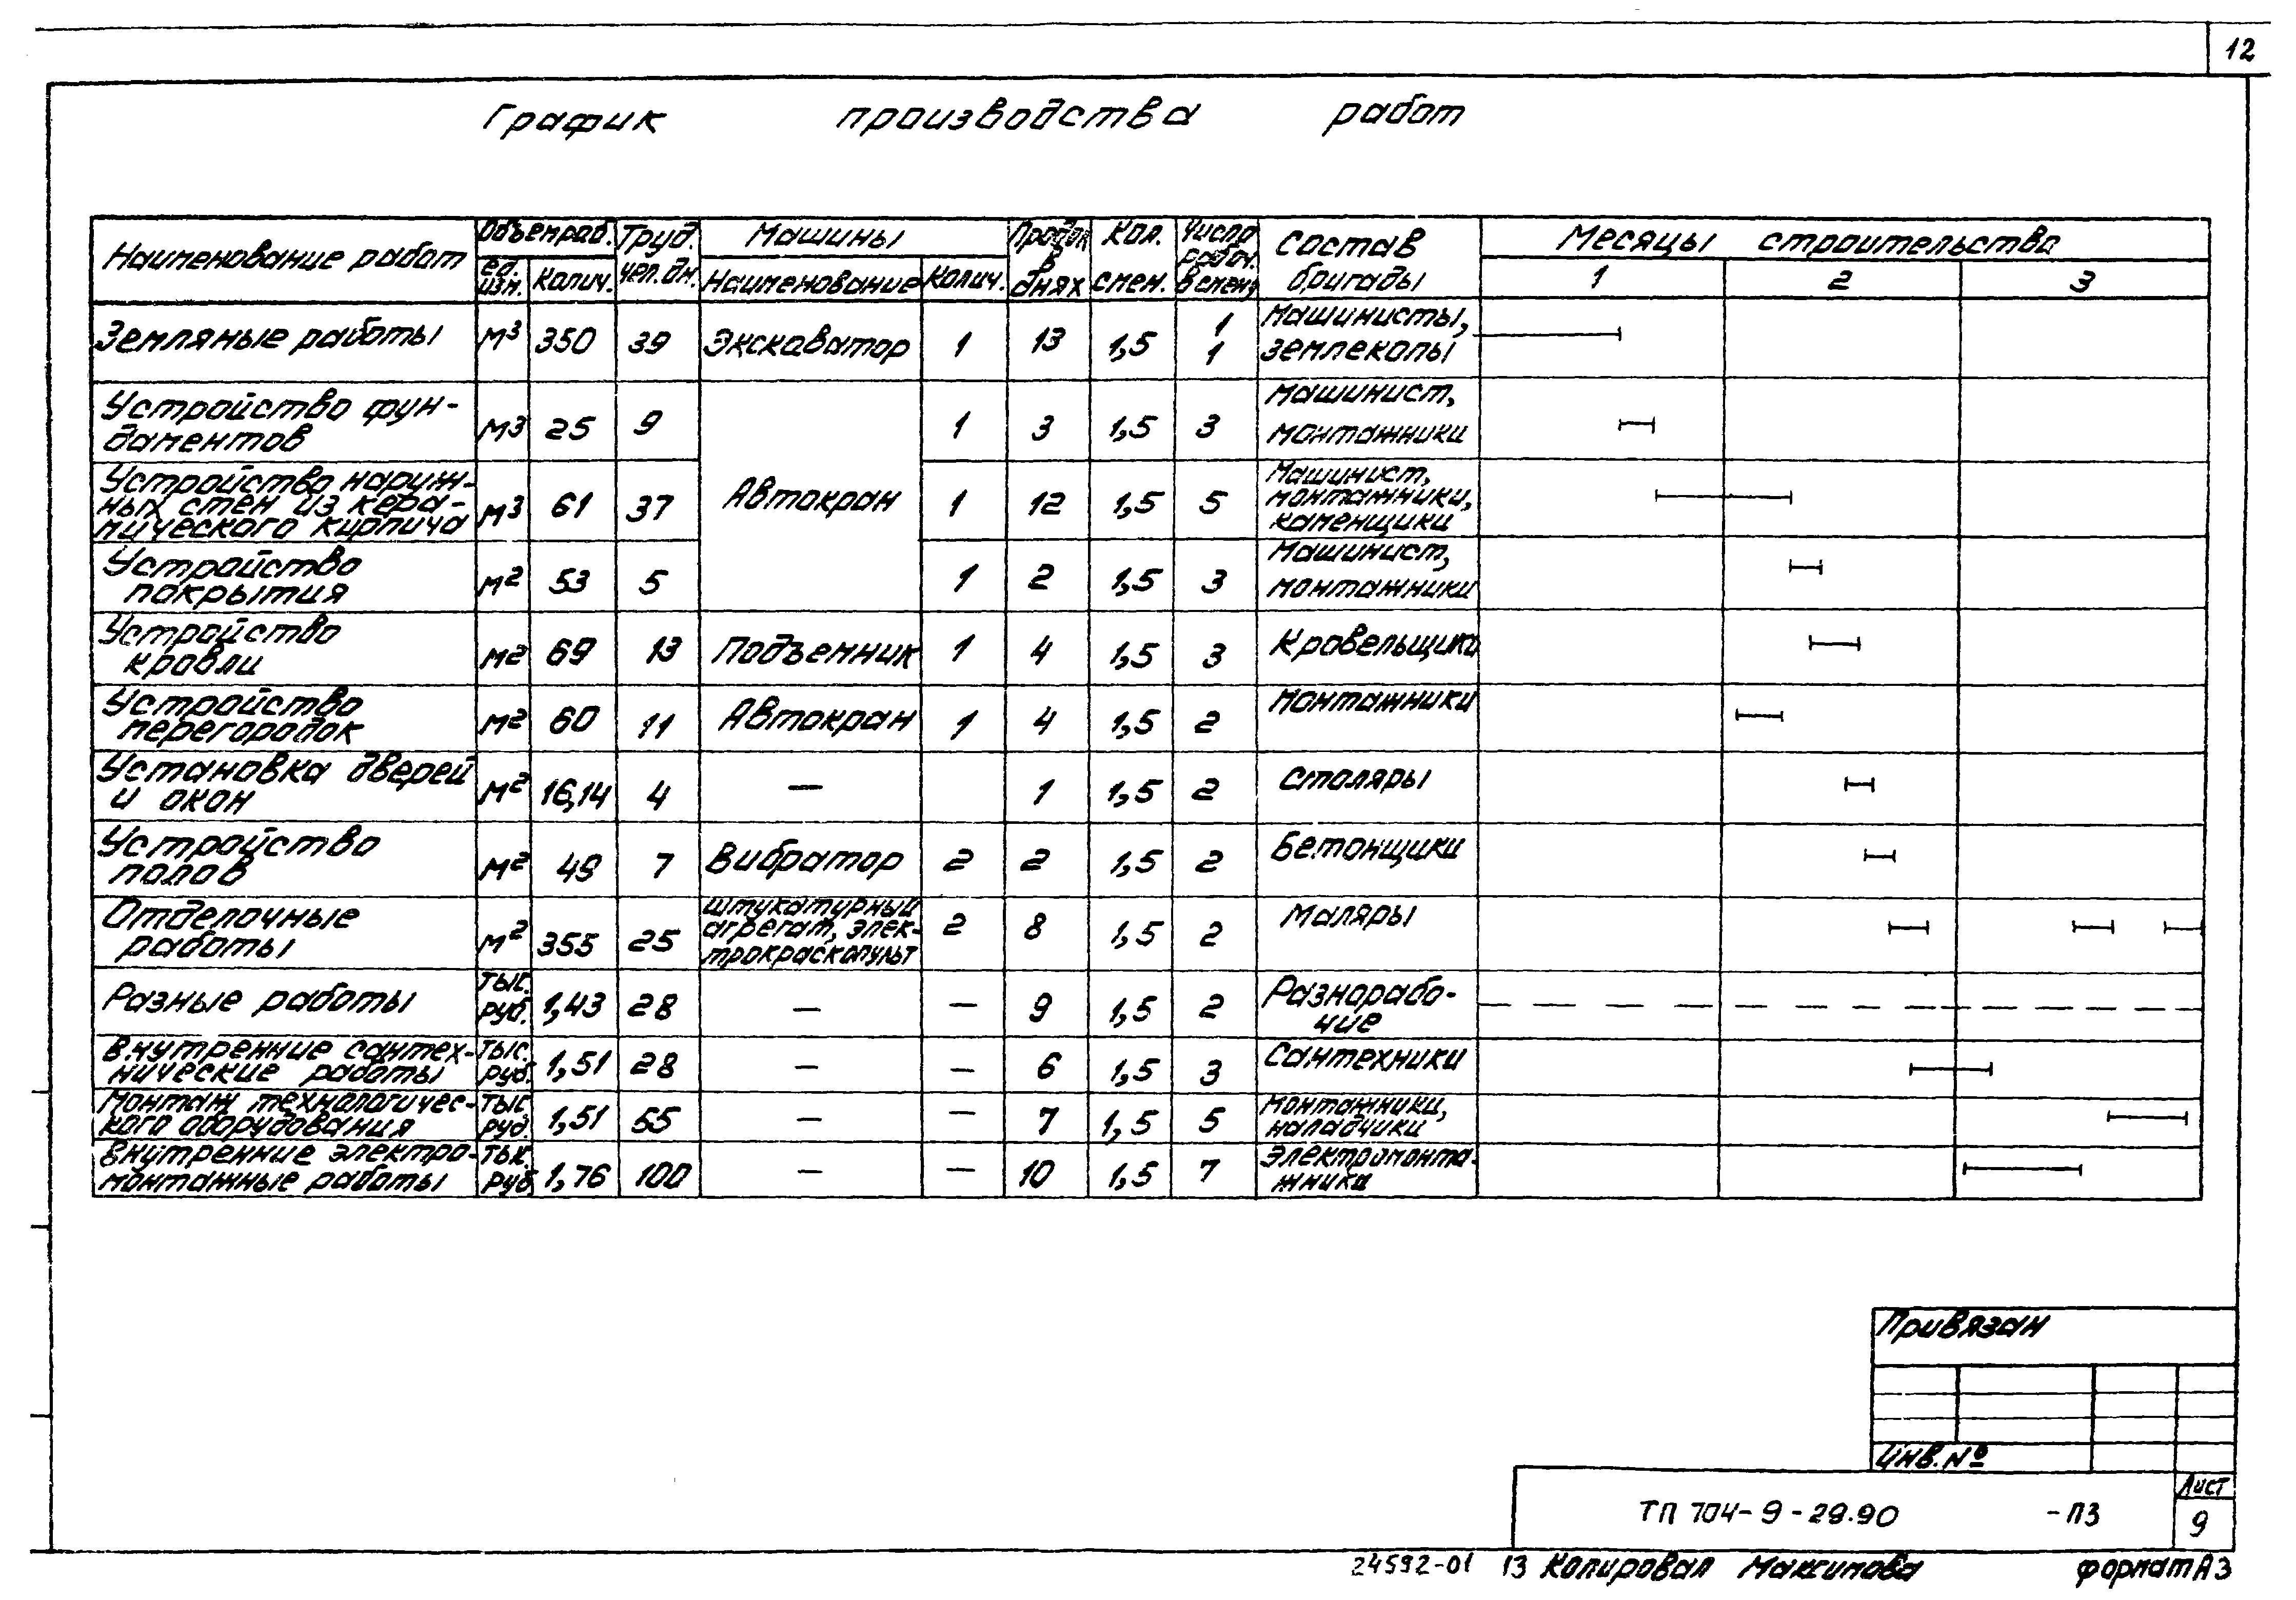 12
График производства работ
Наименование работ Объем раб. Труд. чел.дн. Машины Продол в днях Кол. смен. Число рабоч. в смену Состав бригады Месяцы строительства
ед. изм. Колич. Наименование Колич. 1 2 3
Земляные работы м3 350 39 Экскаватор 1 13 1,5 1 1 Машинисты, землекопы
Устройство фун-
даментов м3 25 9 1 3 1,5 3 Машинист, монтажники
Устройство наруж-
ных стен из кера-
мического кирпича м3 61 37 Автокран 1 12 1,5 5 Машинист, монтажники, каменщики
Устройство
покрытия м2 53 5 1 2 1,5 3 Машинист, монтажники
Устройство
кровли м2 69 13 Подъемник 1 4 1,5 3 Кровельщики
Устройство
перегородок м2 60 11 Автокран 1 4 1,5 2 Монтажники
Установка дверей
и окон м2 16,14 4 — 1 1,5 2 Столяры
Устройство
полов м2 49 7 Вибратор 2 2 1,5 2 Бетонщики
Отделочные
работы м2 355 25 штукатурный агрегат, элек-
трокраскопульт 2 8 1,5 2 Маляры
Разные работы тыс. руб. 1,43 28 — — 9 1,5 2 Разнорабо-
чие
Внутренние сантех-
нические работы тыс. руб. 1,51 28 — — 6 1,5 3 Сантехники
Монтаж технологичес-
кого оборудования тыс. руб. 1,51 55 — — 7 1,5 5 Монтажники, наладчики
Внутренние электро-
монтажные работы тыс. руб. 1,76 100 — — 10 1,5 7 Электромонта-
жники
Привязан
Инв. №
Лист
ТП 704-9-29.90 -ПЗ 9
24592-01 13 Копировал Максимова формат А3